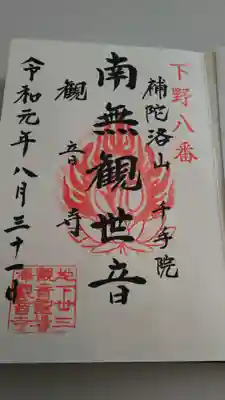 下野八番
補陀洛山 千手院
南無観世音
観音寺
令和元年八月三十一日